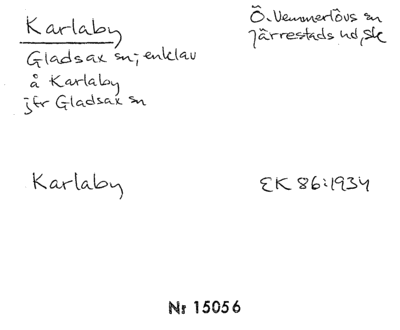 Karlaby
Ö. Vemmerlövs sn
Gladsax sn; enklav
Järrestads hd, Sk
å Karlaby
jfr Gladsax sn
Karlaby
EK 86:1934
Nr 15056